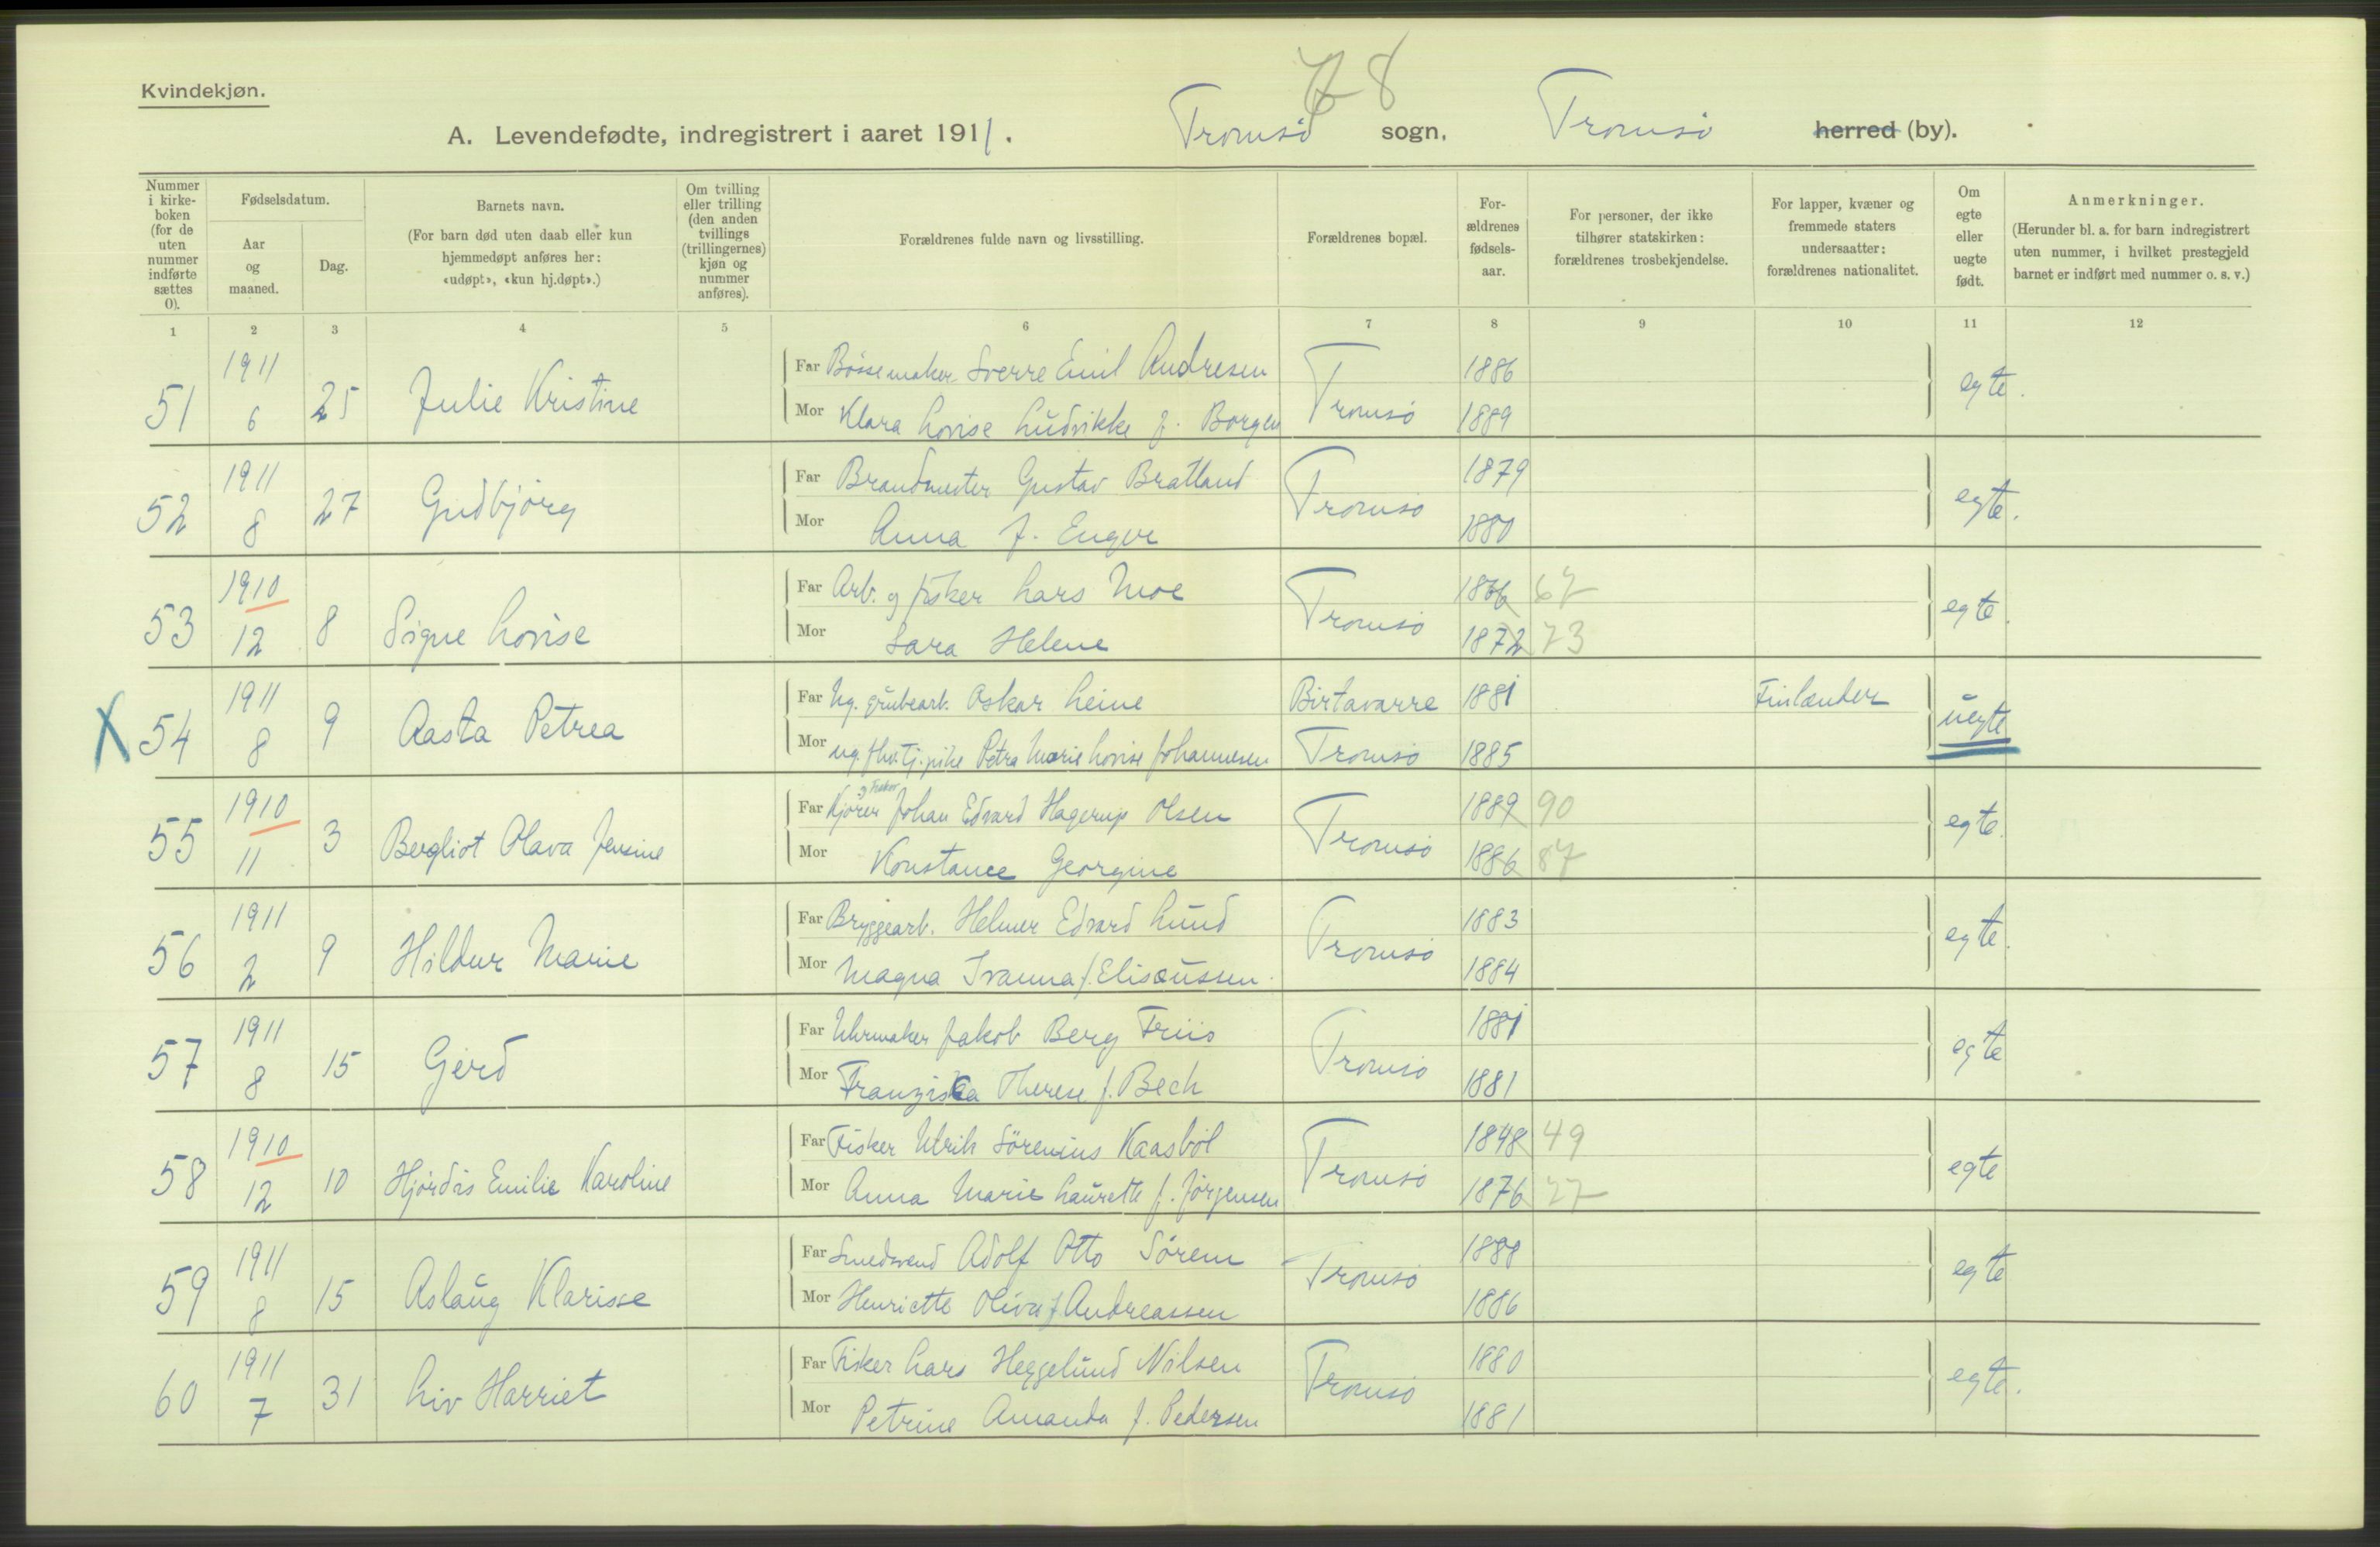 78
Kvindekjøn.
A. Levendefødte, indregistrert i aaret 1911. Tromsö sogn, Tromsö herred (by).
Nummer i kirke-boken (for de uten nummer indførte sættes 0).
Fødselsdatum.
Aar og maaned.
Dag.
Barnets navn.
(For barn død uten daab eller kun hjemmedøpt anføres her: «udøpt», «kun hj.døpt».)
Om tvilling eller trilling (den anden tvillings (trillingernes) kjøn og nummer anføres).
Forældrenes fulde navn og livsstilling.
Forældrenes bopæl.
For-ældrenes fødsels-aar.
For personer, der ikke tilhører statskirken: forældrenes trosbekjendelse.
For lapper, kvæner og fremmede staters undersaatter: forældrenes nationalitet.
Om egte eller uegte født.
Anmerkninger.
(Herunder bl. a. for barn indregistrert uten nummer, i hvilket prestegjeld barnet er indført med nummer o. s. v.)
1 2 3 4 5 6 7 8 9 10 11 12
51 1911 6 25 Julie Kristine Far Bössemaker Sverre Emil Andresen Tromsö 1886 egte.
Mor Klara Lovise Ludvikke f. Borgen 1889
52 1911 8 27 Gudbjörg Far Brandmester Gustav Bratland Tromsö 1879 egte.
Mor Anna f. Enger 1880
53 1910 12 8 Signe Lovise Far Arb. og fisker Lars Moe Tromsö 1866 67 egte.
Mor Sara Helene 1872 73
X 54 1911 8 9 Aasta Petrea Far Ug. grubearb. Oskar Leine Birtavarre 1881 Finlænder uegte
Mor ug. fhv. tj.pike Petra Marie Lovise Johannesen Tromsö 1885
55 1910 11 3 Bergliot Olava Jensine Far Kjörer og fisker Johan Edvard Hagerup Olsen Tromsö 1889 90 egte.
Mor Konstance Georgine 1886 87
56 1911 2 9 Hildur Marie Far Bryggearb. Helmer Edvard Lund Tromsö 1883 egte.
Mor Magna Ivanna f. Elisæussen 1884
57 1911 8 15 Gerd Far Uhrmaker Jakob Berg Friis Tromsö 1881 egte
Mor Franziska Therese f. Bech 1881
58 1910 12 10 Hjördis Emilie Karoline Far Fisker Ulrik Sörenius Kaasböl Tromsö 1848 49 egte
Mor Anna Marie Laurette f. Jörgensen 1876 77
59 1911 8 15 Aslaug Klarisse Far Smedsvend Adolf Otto Sörem Tromsö 1888 egte
Mor Henriette Oliva f. Andreassen 1886
60 1911 7 31 Liv Harriet Far Fisker Lars Heggelund Nilsen Tromsö 1880 egte.
Mor Petrine Amanda f. Pedersen 1881